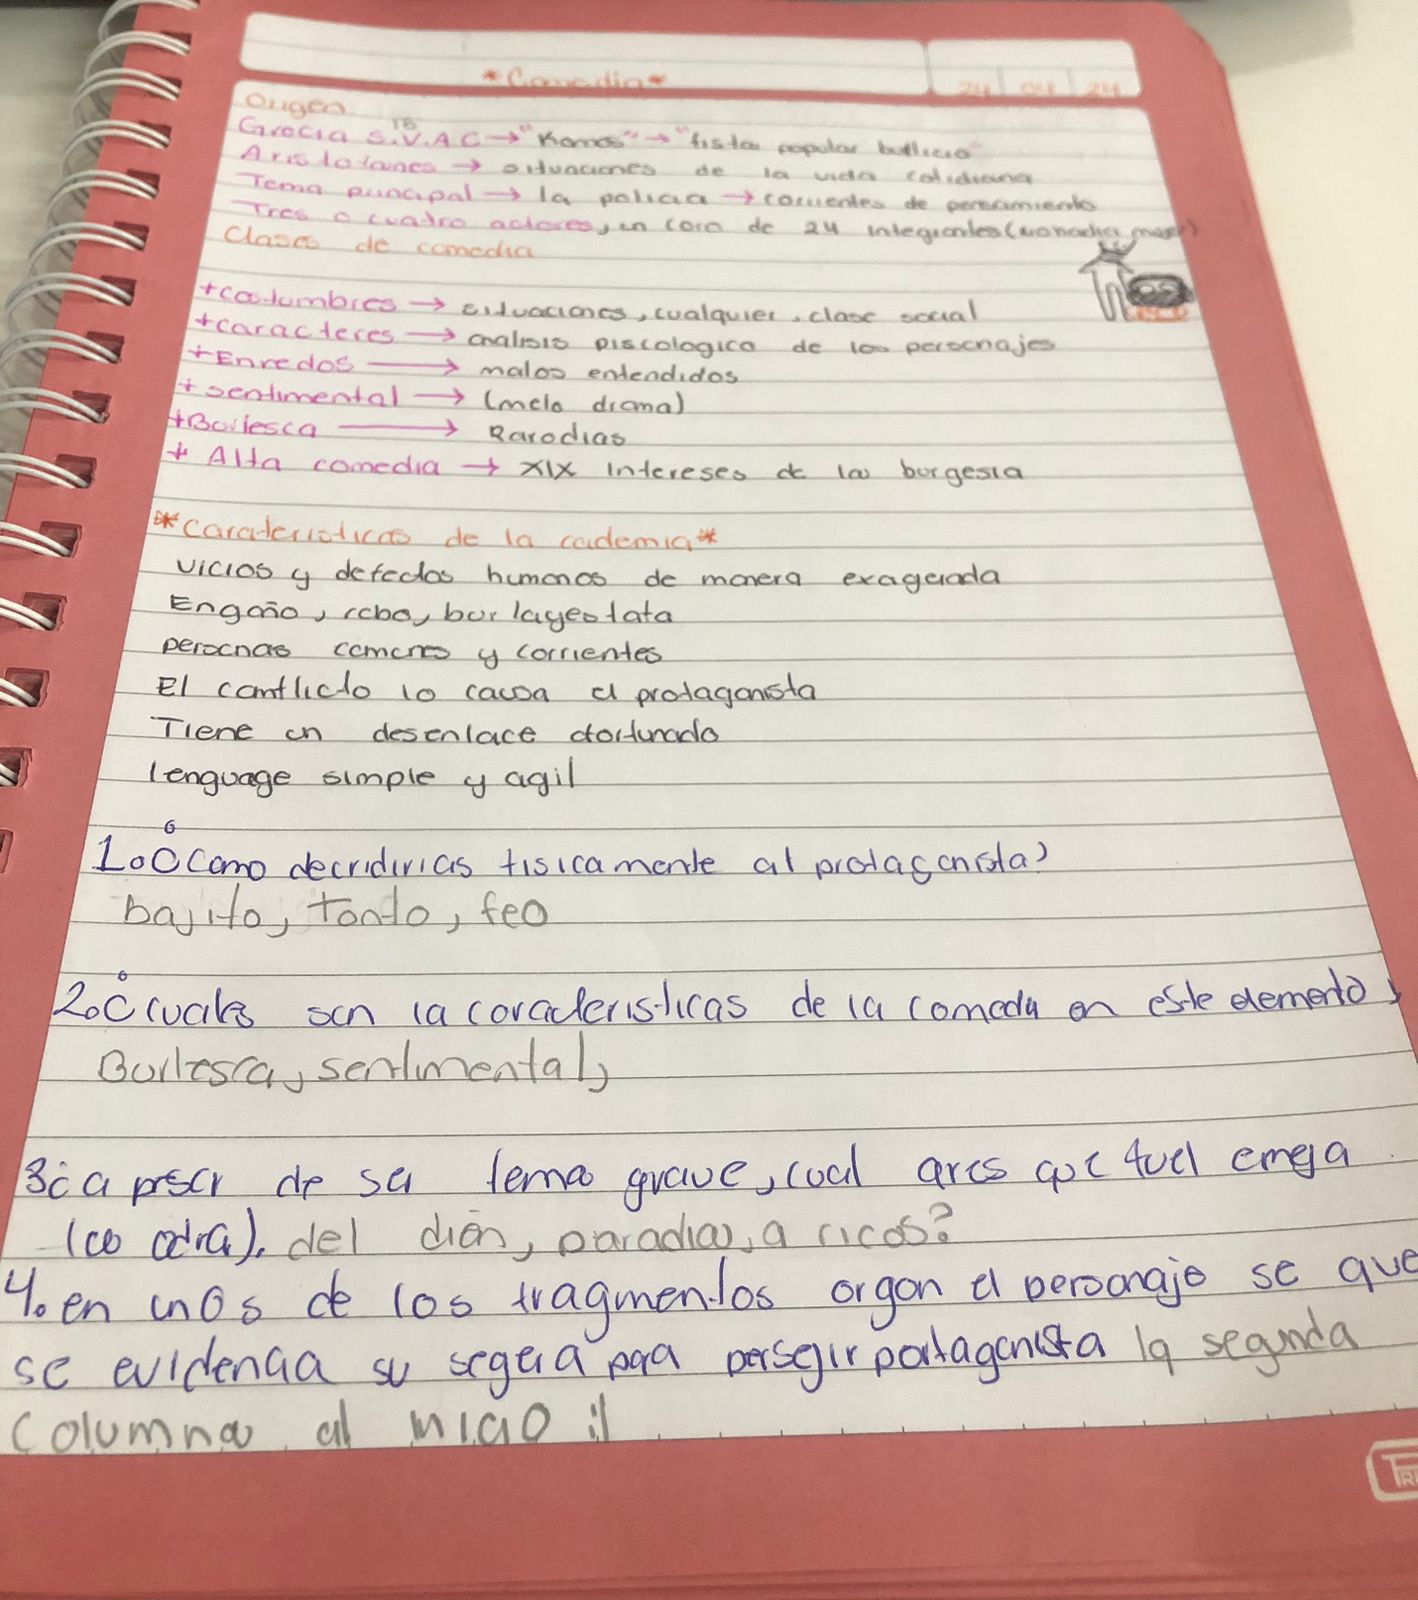 *Comedia*
24 04 24
Origen
Grecia S.V.AC → "Komos" → "fista popular bullicio"
Aristofanes → situaciones de la vida cotidiana
Tema principal → la policia → corrientes de pensamiento
Tres o cuatro actores, un coro de 24 integrantes
Clases de comedia
+costumbres → situaciones, cualquier, clase social
+caracteres → analisis piscologico de los personajes
+Enredos → malos entendidos
+sentimental → (melo drama)
+Burlesca → Parodias
+ Alta comedia → XIX intereses de la burgesia
*caracteristicas de la cademia*
vicios y defectos humanos de manera exagerada
Engaño, robo, burlayestafa
personas comunes y corrientes
El conflicto lo causa el protagonista
Tiene un desenlace afortunado
lenguage simple y agil
1.¿Como decridirias fisicamente al protagonista?
bajito, Tonto, feo
2.¿cuales son la caracteristicas de la comeda en este elemento
Burlesca, sentimental,
3¿a pesar de su tema grave, cual cres que fuel
del parodia, a ricos?
4. en unos de los fragmentos orgon el personaje se que
se evidencia su segera para persegir portagonista la segunda
columna al